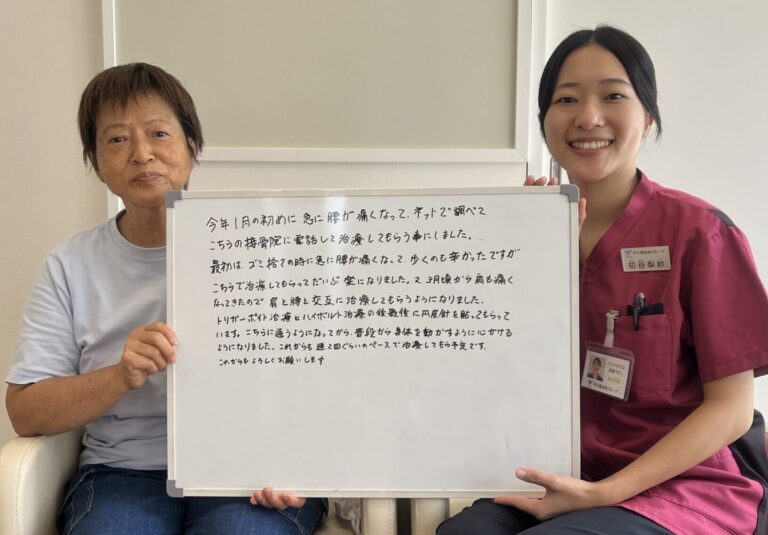 今年1月の初めに 急に腰が痛くなって、ネットで調べて
こちらの接骨院に電話して治療してもらう事にしました。
最初は、ゴミ捨ての時に急に腰が痛くなって、歩くのも辛かったですが
こちらで治療してもらってだいぶ楽になりました。又、3月頃から肩も痛く
なってきたので 肩と腰と交互に治療してもらうようになりました。
トリガーポイント治療とハイボルト治療の後最後に円皮針を貼ってもらって
います。こちらに通うようになってから、普段から身体を動かすように心がける
ようになりました。これからも週1回ぐらいのペースで治療してもらう予定です。
これからもよろしくお願いします
初谷梨紗